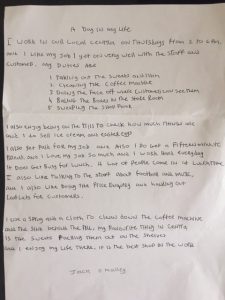 A Day in my Life
I work in our local Centra on Thursdays from 2 to 6pm.
and I like my Job I get on very well with the staff and
customers. My Duties are
1 Packing out the sweets
2 Cleaning the Coffee machine
3 Doing the face off while customers can see them
4 Baling the Boxes in the store Room
5 Sweeping the shop floor
I also enjoy being on the tills to check how much things are
and I to sell ice cream and
I also get paid for my Job. and also I do get a fifteen minute
Break and I love my Job so much and I work hard everyday
it does get busy for lunch. A lot of people come in at lunchtime
I also like talking to the staff about football and music,
and I also like being the Price and handing out
leaflets for customers.
I use a spray and a cloth to clean down the coffee machine
and the sink beside the till, my favourite thing in Centra
is the sweets Packing them out on the shelves
and I enjoy my life there. it is the best shop in the world
Jack O Malley